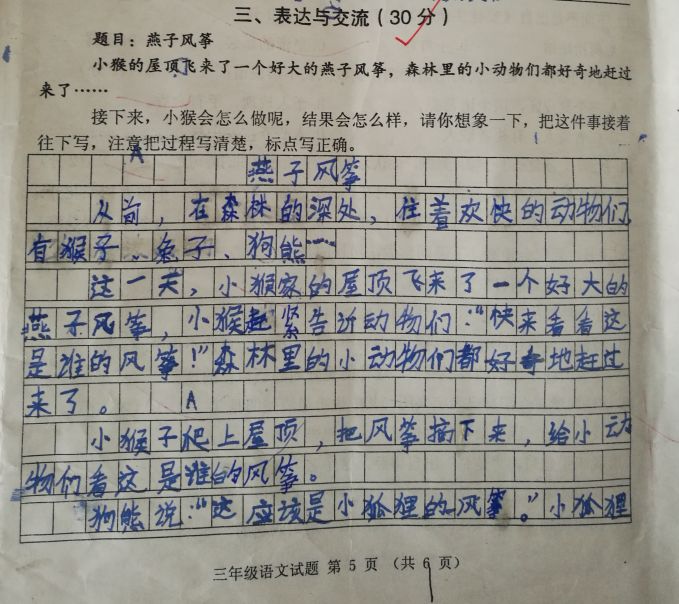 三、表达与交流（30分）
题目：燕子风筝
小猴的屋顶飞来了一个好大的燕子风筝，森林里的小动物们都好奇地赶过
来了……
接下来，小猴会怎么做呢，结果会怎么样，请你想象一下，把这件事接着
往下写，注意把过程写清楚，标点写正确。
燕子风筝
从前，在森林的深处，住着欢快的动物们，
有猴子、兔子、狗熊……
这一天，小猴家的屋顶飞来了一个好大的
燕子风筝，小猴赶紧告诉动物们："快来看看这
是谁的风筝！"森林里的小动物们都好奇地赶过
来了。
小猴子爬上屋顶，把风筝摘下来，给小动
物们看这是谁的风筝。
狗熊说："这应该是小狐狸的风筝。"小狐狸
三年级语文试题 第 5 页 （共 6 页）